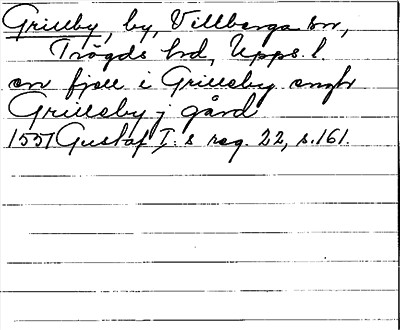 Grillby, by, Villberga sn,
Trögds hd, Upps. l.
en fjell i Grillesby
Grillesby j gård
1551 Gustaf I:s reg. 22, s. 161.